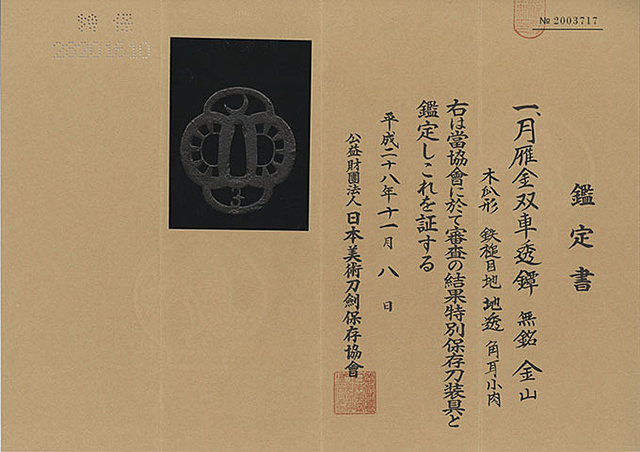 № 2003717
鑑定書
一、月雁金双車透鐔 無銘 金山
木瓜形 鉄槌目地 地透 角耳小肉
右は當協會に於て審査の結果特別保存刀装具と
鑑定しこれを証する
平成二十八年十一月八日
公益財團法人 日本美術刀劍保存協會